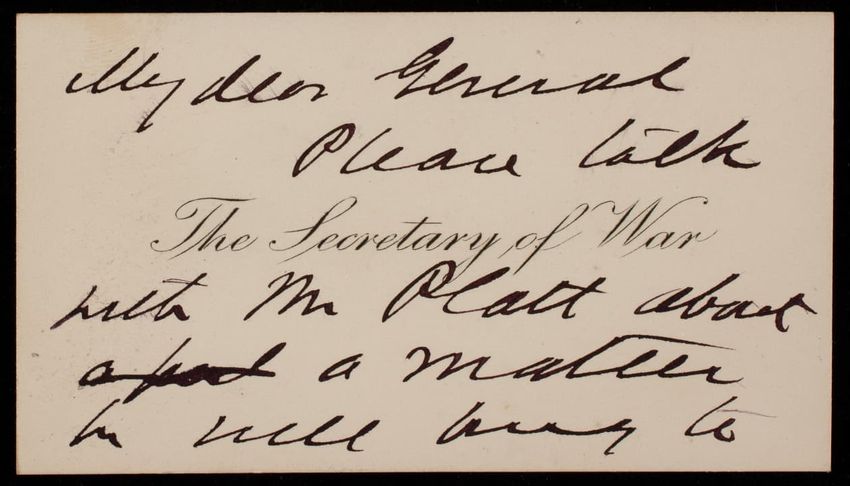 My dear General
Please talk
The Secretary of War
with Mr Platt about
a a matter
he will bring to